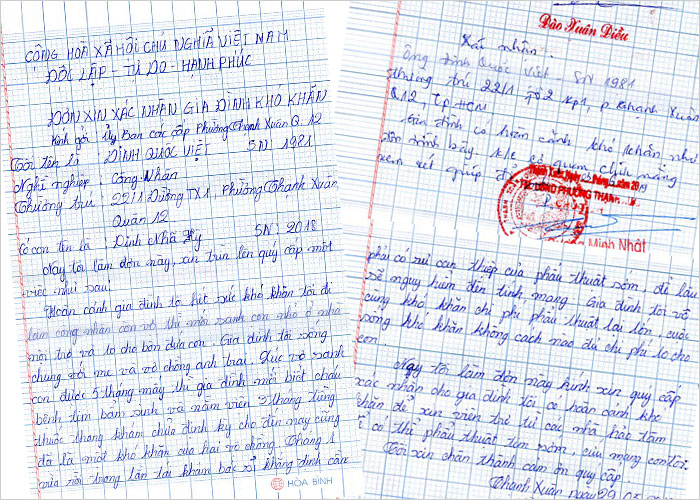 CỘNG HOÀ XÃ HỘI CHỦ NGHĨA VIỆT NAM
ĐỘC LẬP - TỰ DO - HẠNH PHÚC
ĐƠN XIN XÁC NHẬN GIA ĐÌNH KHÓ KHĂN
Kính gởi : Ủy Ban các cấp Phường Thạnh Xuân Q.12
Tôi tên là : ĐINH QUỐC VIỆT SN 1981
Nghề nghiệp : Công Nhân
Thường trú : 22/1 Đường TX1, Phường Thạnh Xuân,
Quận 12
Có con tên là : Đinh Nhã Hy SN : 2018
Nay tôi làm đơn này, xin trìn lên quý cấp một
việc như sau
Hoàn cảnh gia đình tô hết sức khó khăn tôi đi
làm công nhân còn vợ thì mới sanh con nhỏ ở nhà
nội trợ và lo cho bốn đứa con. Gia đình tôi sống
chung với mẹ và vợ chồng anh trai. Lúc vợ sanh
con được 5 tháng mấy thì gia đình mới biết cháu
bệnh tim bẩm sinh và nằm viên 2 tháng từng
thuốc thang khám chữa định kỳ cho đến nay cũng
đã là một khó khăn của hai vợ chồng tháng 1
vừa rồi trong lần tái khám bác sĩ khẳng định cần
HÒA BÌNH
Đào Xuân Diều
Xác nhận :
Ông Đinh Quốc Việt - SN 1981
thường trú 22/1 tổ 2 kp1, p. Thạnh Xuân
Q12, Tp HCM
Gia đình có hoàn cảnh khó khăn như
đơn trình bày. k/c cơ quan chức năng
xem xét giúp đỡ
Minh Nhật
phải có sự can thiệp của phẫu thuật sớm, để lâu
sẽ nguy hiểm đến tính mạng. Gia đình tôi vô
cùng khó khăn chi phí phẫu thuật lại lớn, cuộc
sống khó khăn không cách nào đủ chi phí lo cho
con.
Nay tôi làm đơn này kính xin quý cấp
xác nhận cho gia đình tôi có hoàn cảnh khó
khăn để xin viện trợ từ các nhà hảo tâm
để có thể phẫu thuật tim sớm, cứu mạng con tôi.
Tôi xin chân thành cảm ơn quý cấp.
Thạnh Xuân